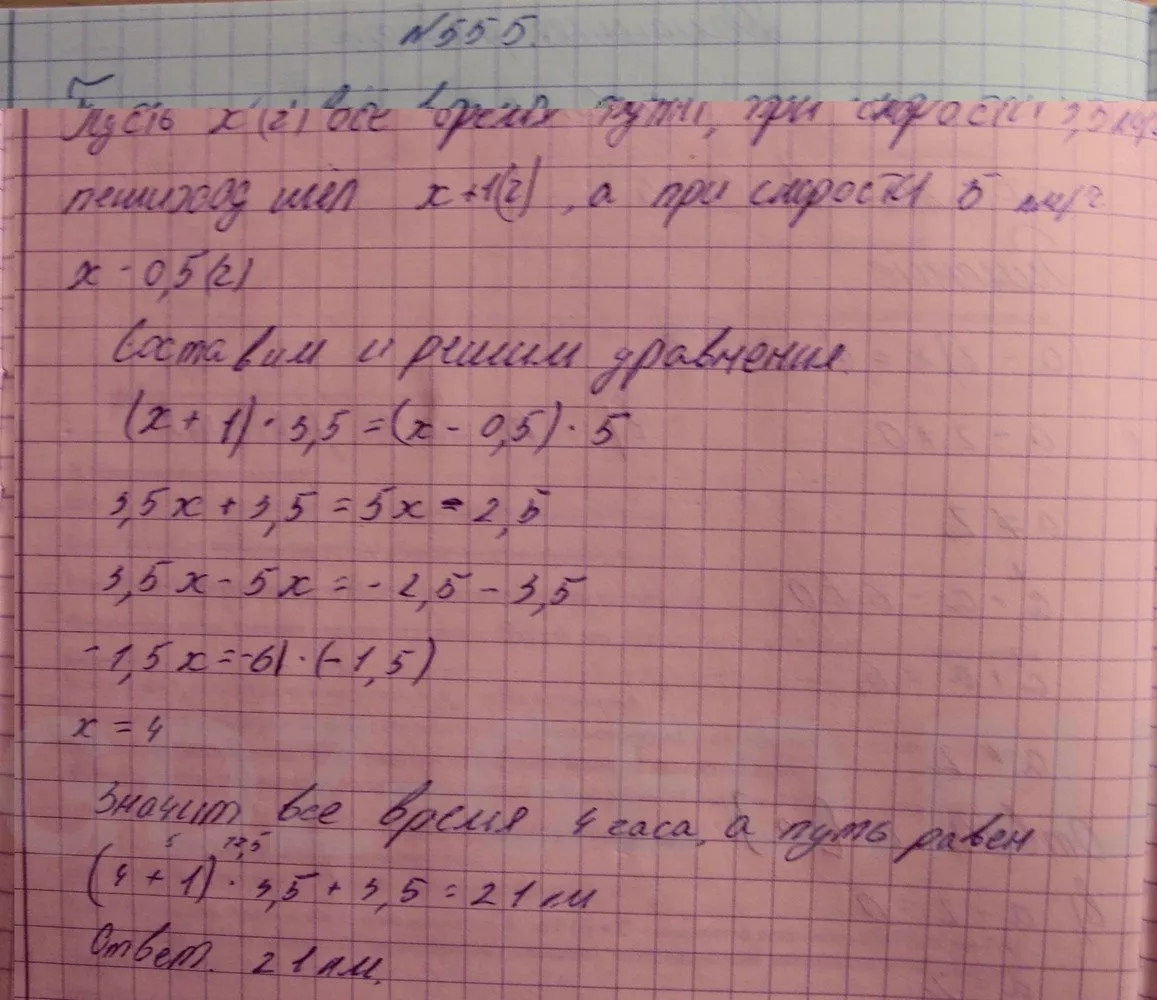 №555.
Пусть x(г) все время пути, при скорости 3,5 км/ч
пешиход шёл x+1(г), а при скорости 5 км/ч
x - 0,5(г)
Составим и решим уравнения.
(x + 1) · 3,5 = (x - 0,5) · 5
3,5x + 3,5 = 5x - 2,5
3,5x - 5x = - 2,5 - 3,5
-1,5x = -6| · (-1,5)
x = 4
Значит все время 4 часа, а путь равен
5 17,5
(4 + 1) · 3,5 + 3,5 = 21 км
Ответ. 21 км.